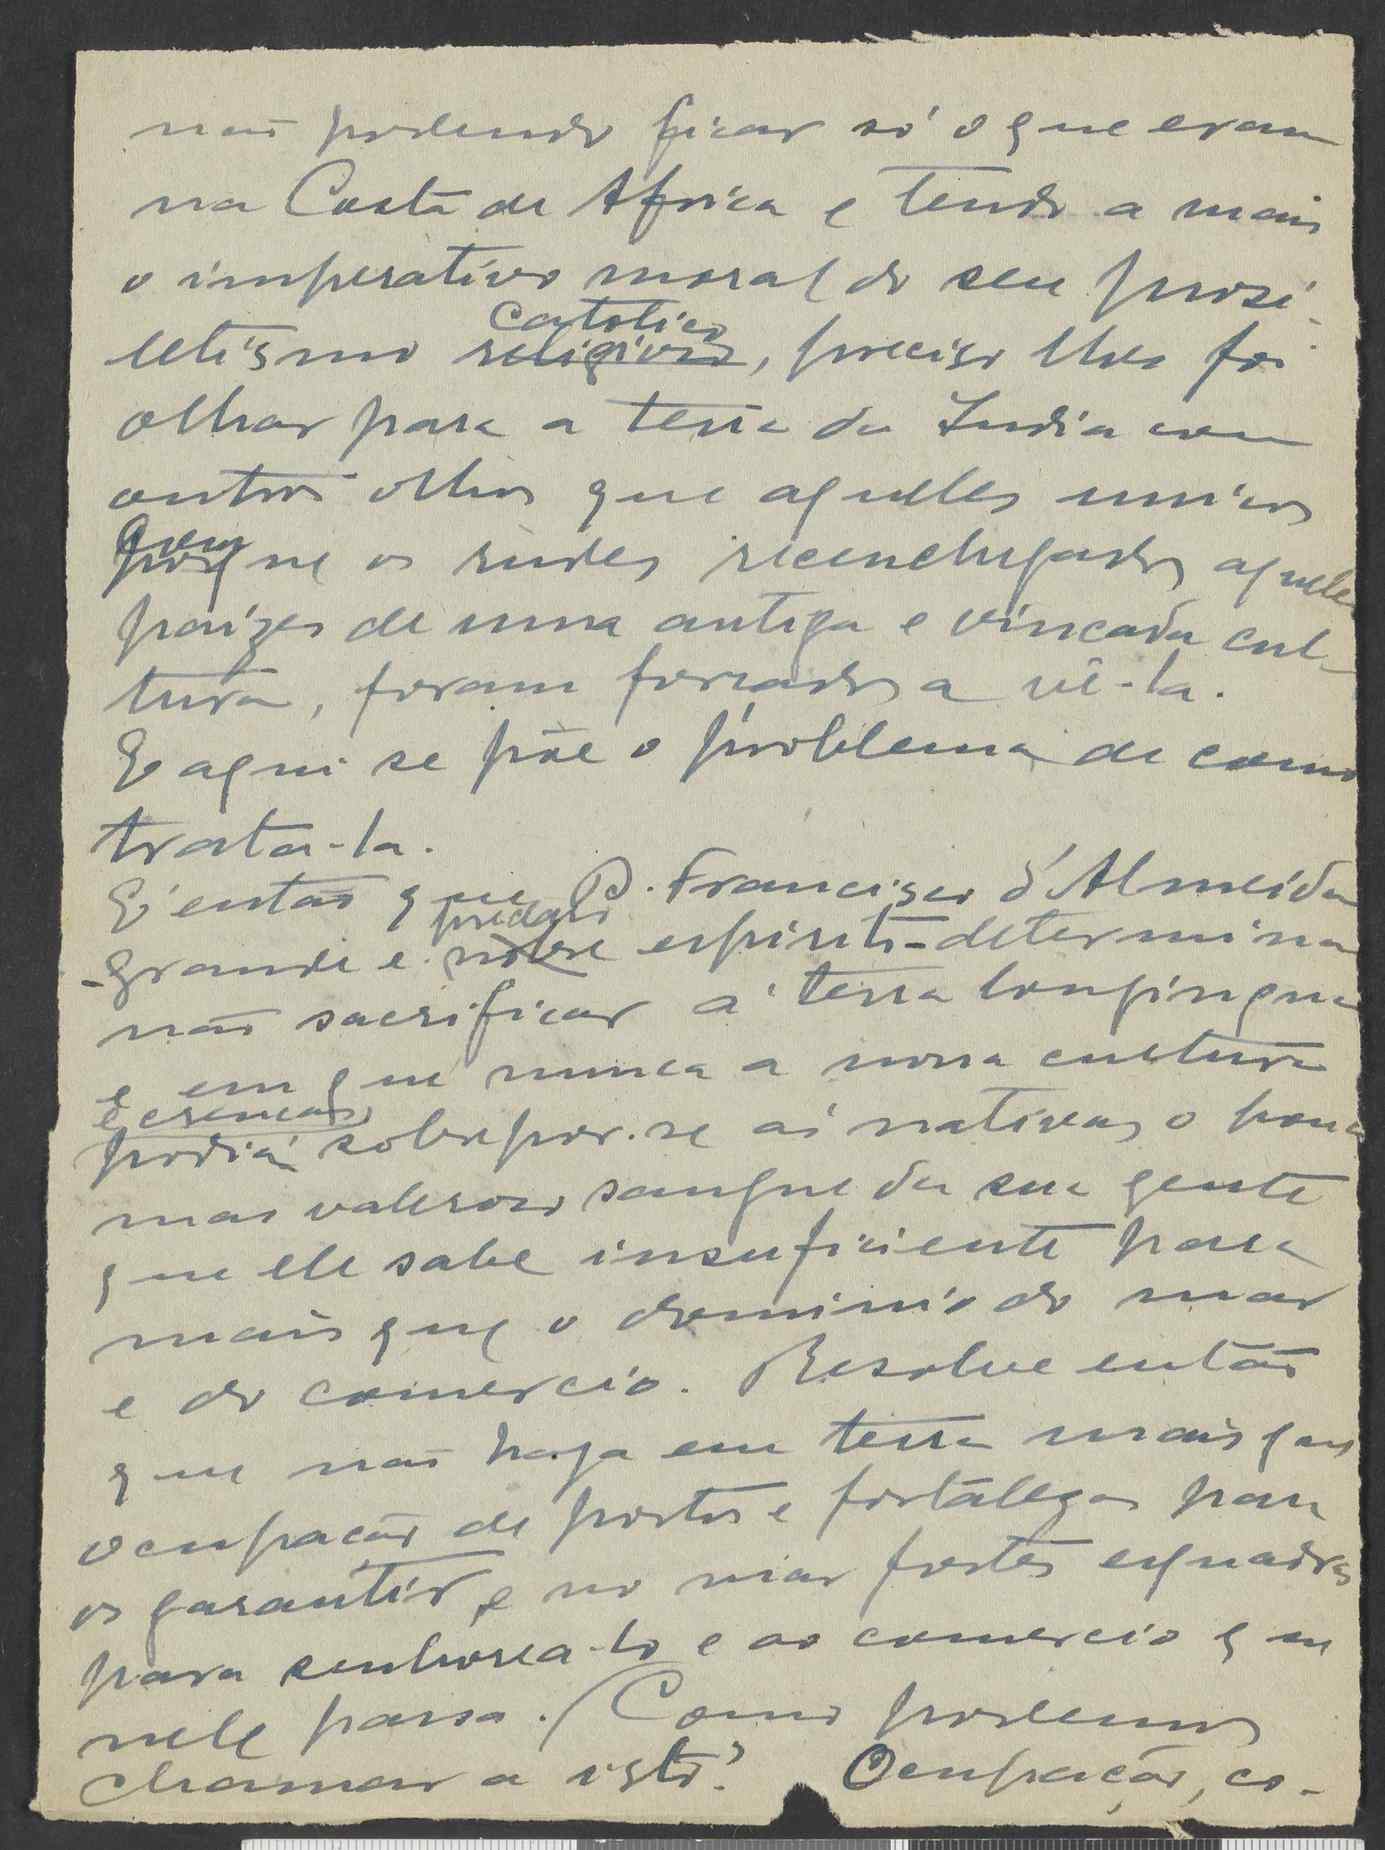 não podendo ficar só o que eram
na Costa de Africa e tendo a mais
o imperativo moral do seu prosi-
letismo religioso catolico, preciso lhes foi
olhar para a terra da India com
outros olhos que aqueles unicos
com que os rudes recenchegados aqueles
paizes de uma antiga e vincada cul-
tura, foram forçados a vê-la.
E aqui se põe o problema de como
trata-la.
E' então que D. Francisco d'Almeida
-grande e nobre espirito- determina
não sacrificar á terra longinqua
e em que nunca a nossa cultura
e crenças
podiá sobrepor-se ás nativas o pouco
mas valeroso sangue da sua gente
que ele sabe insuficiente para
mais que o dominio do mar
e do comercio. Resolve então
que não haja em terra mais que
ocupação de portos e fortalezas para
os garantir e no mar fortes esquadras
para senhorea-lo e ao comercio que
nele passa. / Como podemos
chamar a isto? Ocupação, co-